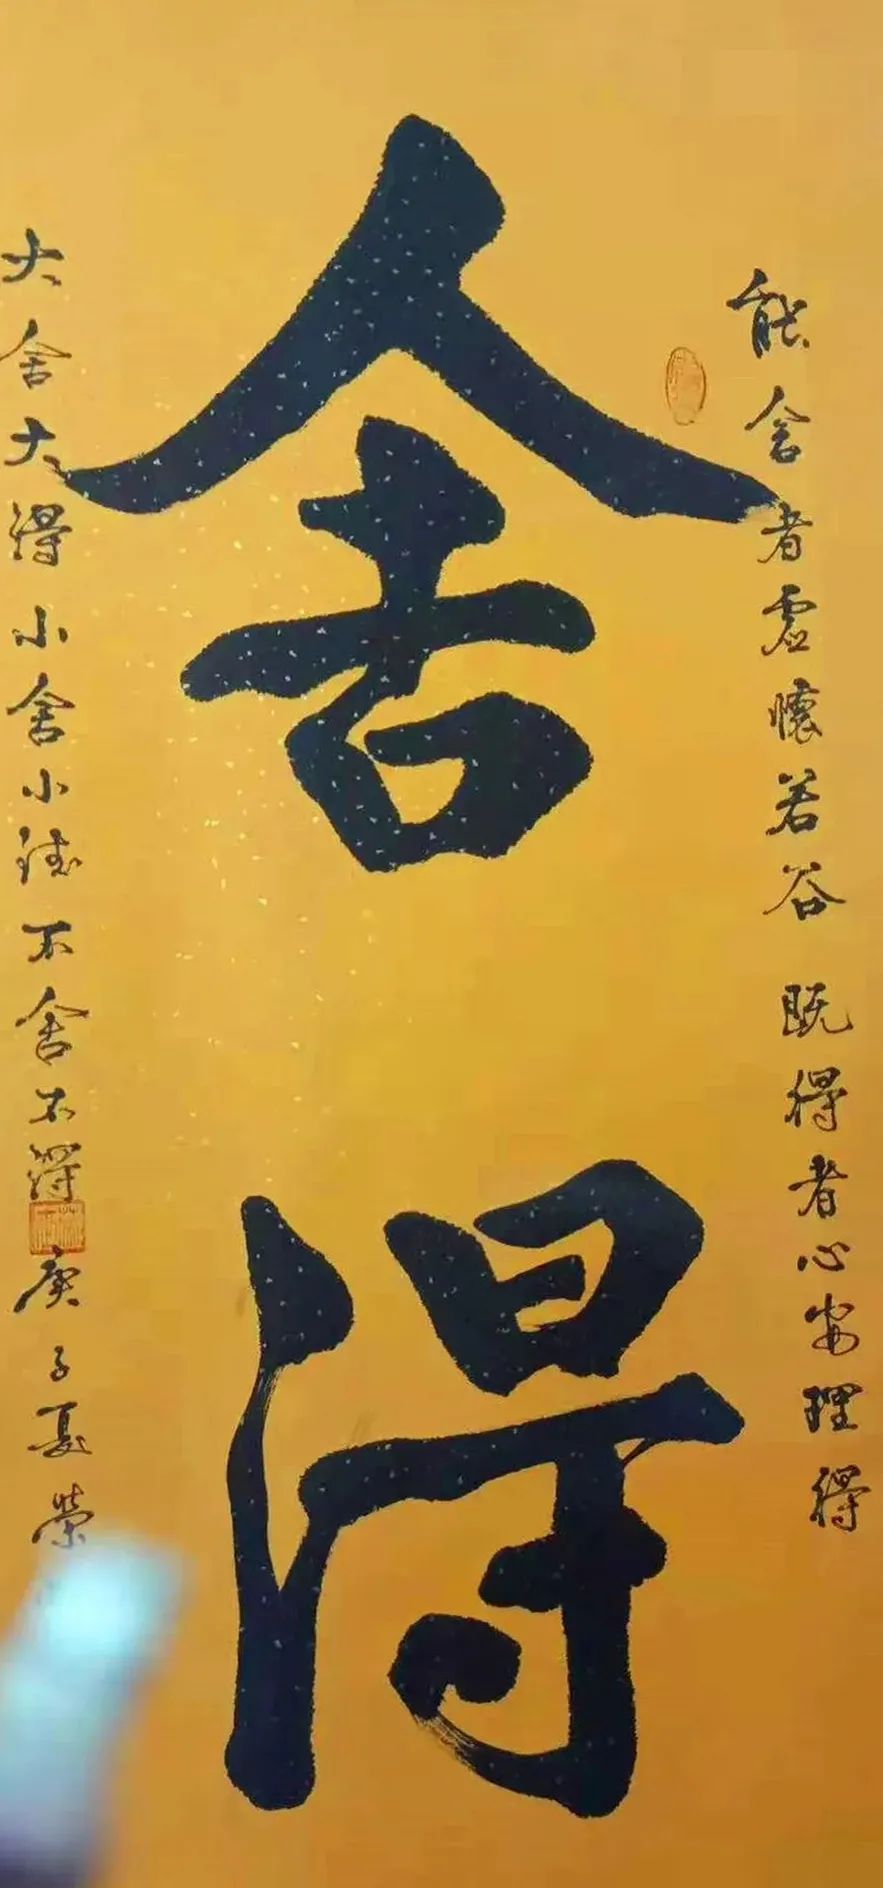 能舍者虚懷若谷 既得者心安理得
舍得
大舍大得小舍小得不舍不得 庚子夏榮